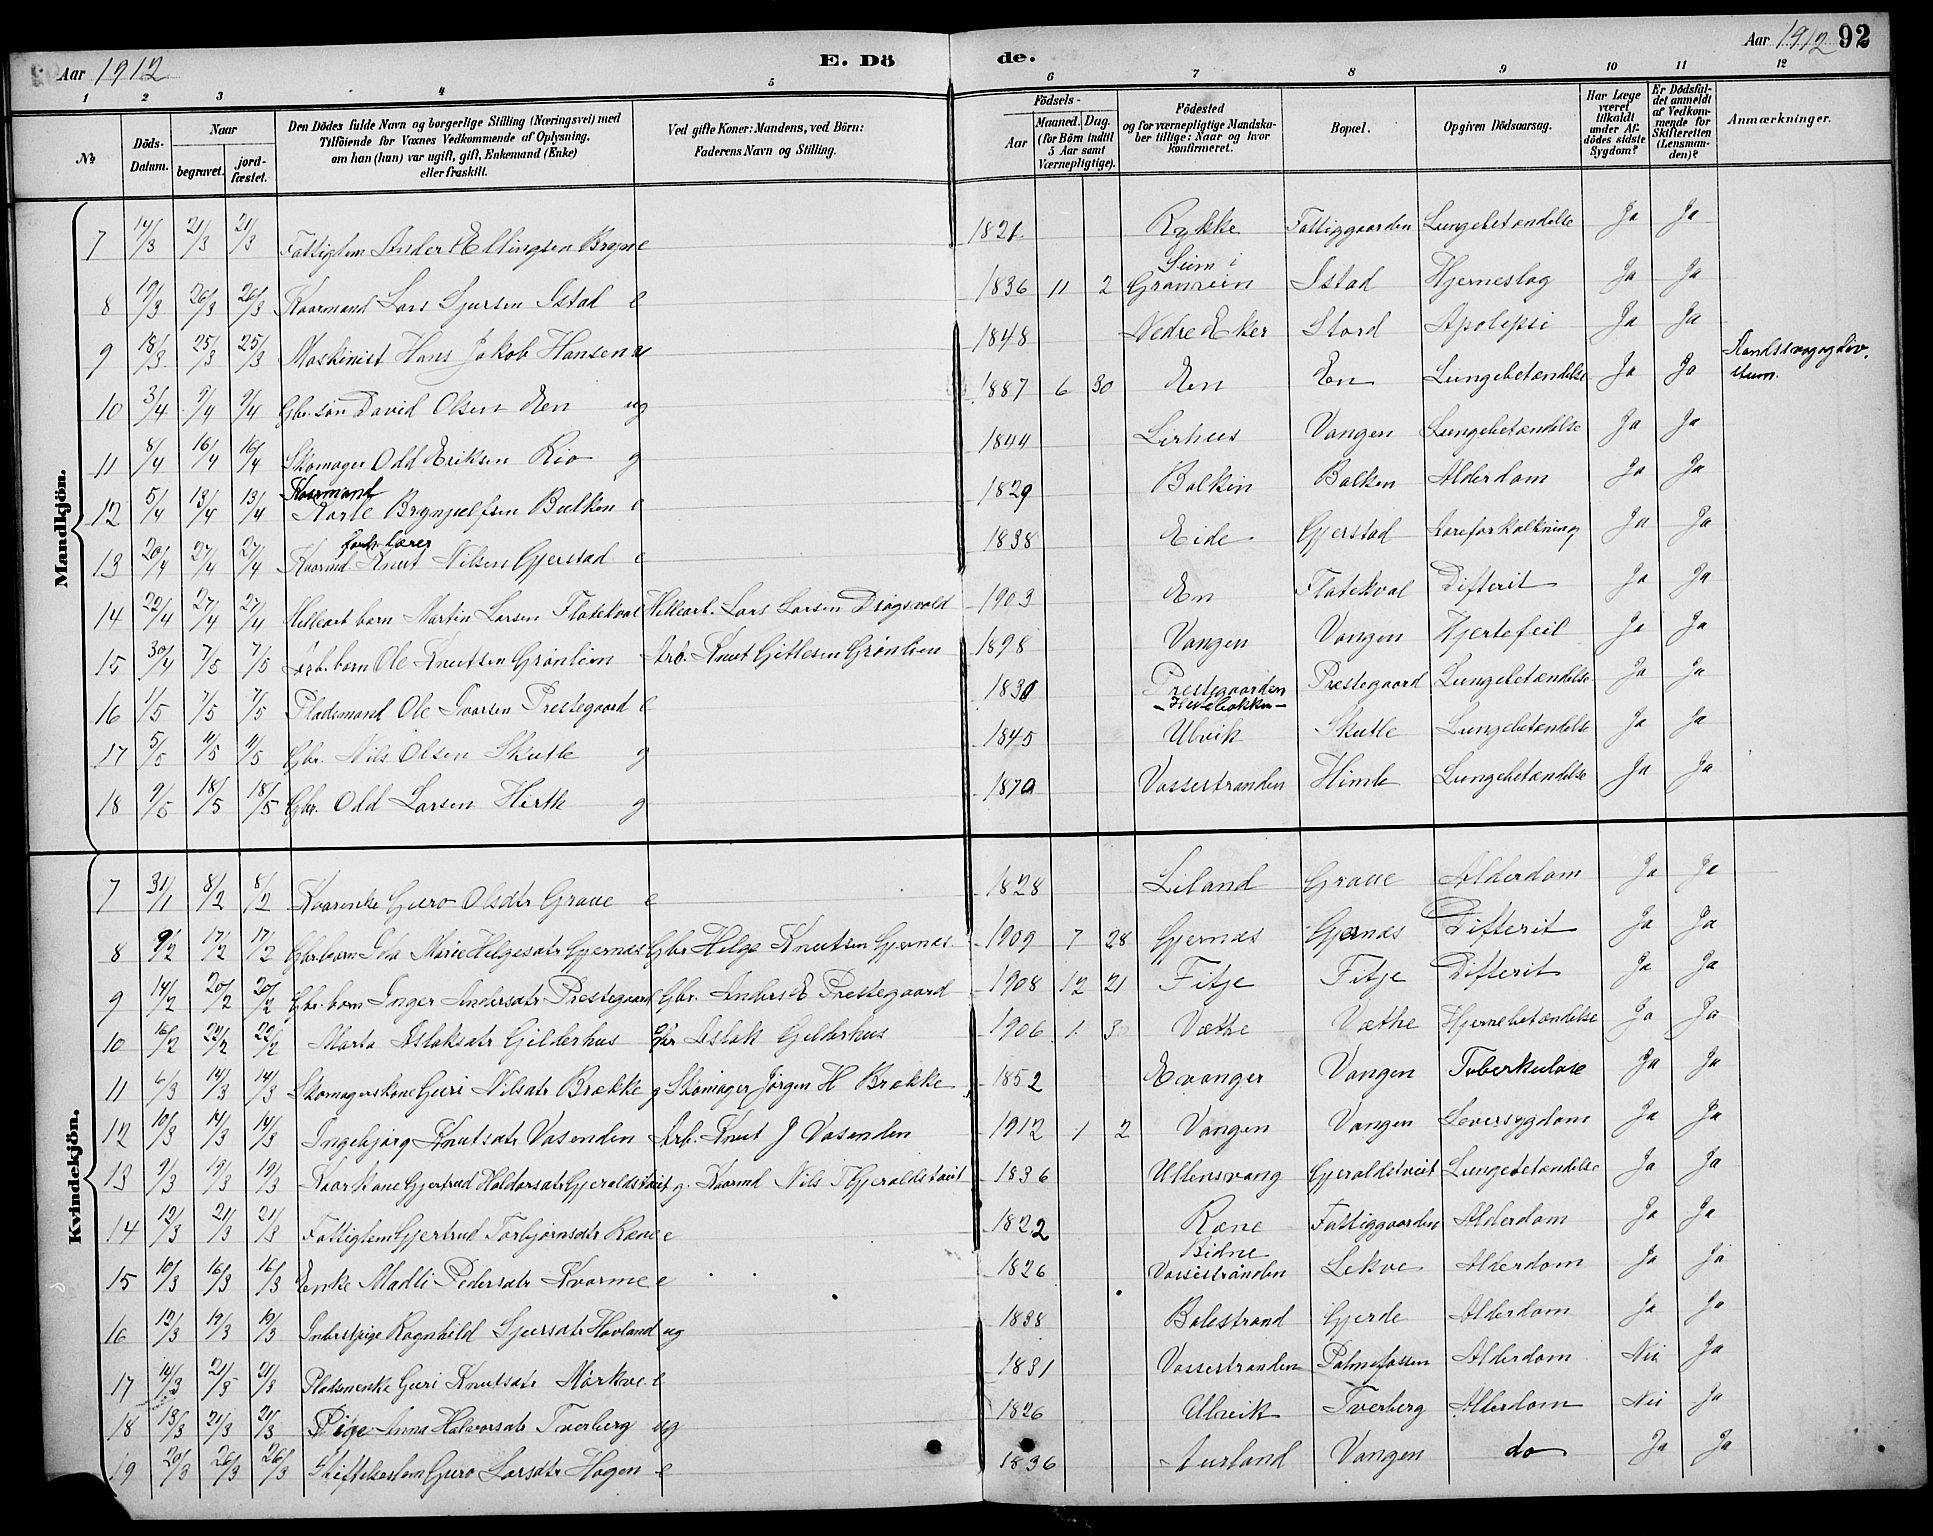 Aar 1912 E. Dö de. Aar 1912 92
1 2 3 4 5 6 7 8 9 10 11 12
№ Döds-Datum. Naar begravet. jord-fæstet. Den Dödes fulde Navn og borgerlige Stilling (Næringsvei) med Tilföiende for Voxnes Vedkommende af Oplysning, om han (hun) var ugift, gift, Enkemand (Enke) eller fraskilt. Ved gifte Koner: Mandens, ved Börn: Faderens Navn og Stilling. Födsels- Aar Maaned. Dag. (for Börn indtil 5 Aar samt Værnepligtige). Födested og for værnepligtige Mandskaber tillige: Naar og hvor konfirmeret. Bopæl. Opgiven Dödsaarsag. Har Læge været tilkaldt under Afdödes sidste Sygdom? Er Dödsfaldet anmeldt af Vedkommende for Skifteretten (Lensmanden)? Anmærkninger.
Mandkjön.
7 14/3 21/3 21/3 Fattiglem Anders Ellingsen Bryn e 1821 Rykke Fattiggaarden Lungebetændelse Ja Ja
8 19/3 26/3 26/3 Kaarmand Lars Sjursen Istad e 1836 11 2 Istad Hjerneslag Ja Ja
9 18/3 25/3 25/3 Maskinist Hans Jakob Hansen 1848 Nedre Eker Stord Apoleksi Ja Ja
10 3/4 9/4 9/4 Gbr. søn David Olsen Æen ug 1887 6 30 Æen Æen Lungebetændelse Ja Ja
11 8/4 16/4 16/4 Skomager Odd Eriksen Rio g 1844 Lirhus Vangen Lungebetændelse Ja Ja
Kaarmand
12 5/4 13/4 13/4 Brynjulfsen Bulken e 1829 Bolken Bolken Alderdom Ja Ja
13 20/4 27/4 27/4 Kaarmd Knut Nilsen Gjerstad e 1838 Eide Gjerstad Aareforkalkning Ja Ja
14 22/4 27/4 27/4 barn Martin Larsen Flatekval Lars Larsen Dragsvold 1903 Æn Flatekval Difterit Ja Ja
15 30/4 7/5 7/5 Arb. barn Ole Knutsen Grønlien Arb. Knut Gitlesen Grønlien 1898 Vangen Vangen Hjertefeil Ja Ja
16 1/5 7/5 7/5 Pladsmand Ole Ivarsen Prestegaard e 1830 Prestegaarden Præstegaard Lungebetændelse Ja Ja
17 5/5 11/5 11/5 Gbr. Nils Olsen Skutle g 1845 Ulvik Skutle Lungebetændelse Ja Ja
18 9/5 18/5 18/5 Gbr. Odd Larsen Hirth g 1870 Vossestranden Himle Lungebetændelse Ja Ja
Kvindekjön.
7 31/1 8/2 8/2 Kaarenke Guro Olsdtr Graue e 1828 Liland Graue Alderdom Ja Ja
8 9/2 17/2 17/2 Gbr. barn Marie Helgesdtr Gjernæs Gbr Helge Knutsen Gjernæs 1909 7 28 Gjernæs Gjernæs Difterit Ja Ja
9 14/2 20/2 20/2 Gbr. barn Inger Andersdtr Prestegaard Gbr. Anders E Prestegaard 1908 12 21 Fitje Fitje Difterit Ja Ja
10 16/2 22/2 22/2 Marta Aslaksdtr Gilderhus Gbr Aslak Gilderhus 1906 1 3 Væthe Væthe Hjernebetændelse Ja Ja
11 6/3 14/3 14/3 Skomagerskone Guri Nilsdtr Brække g Skomager Jørgen H Brække 1852 Evanger Vangen Tuberkulose Ja Ja
12 10/3 14/3 14/3 Ingebjørg Knutsdtr Vasenden Arb. Knut J Vasenden 1912 1 2 Vangen Vangen Leversygdom Ja Ja
13 9/3 19/3 19/3 Kaarkone Gjertrud Haldorsdtr Gjeraldstveit g. Kaarmd Nils T Gjeraldstveit 1836 Ullensvang Gjeraldstveit Lungebetændelse Ja Ja
14 12/3 21/3 21/3 Fattiglem Gjertrud Torbjørnsdtr Rene e 1822 Rene Fattiggaarden Alderdom Ja Ja
15 10/3 16/3 16/3 Enke Madli Pedersdtr Kvarme e 1826 Bidne Vossestranden Lekve Alderdom Ja Ja
16 12/3 19/3 19/3 Inderstpige Ragnhild Sjursdtr Havland ug 1838 Balestrand Gjerde Alderdom Ja Ja
17 14/3 21/3 21/3 Pladsmenke Guri Knutsdtr Mørkve e 1831 Vossestranden Palmefossen Alderdom Nei Ja
18 13/3 21/3 21/3 Pige Anna Halvorsdtr Tverberg ug 1826 Ulvik Tverberg Alderdom Nei Ja
19 20/3 26/3 26/3 Guro Larsdtr Hagen e 1836 Aurland Vangen do Ja Ja